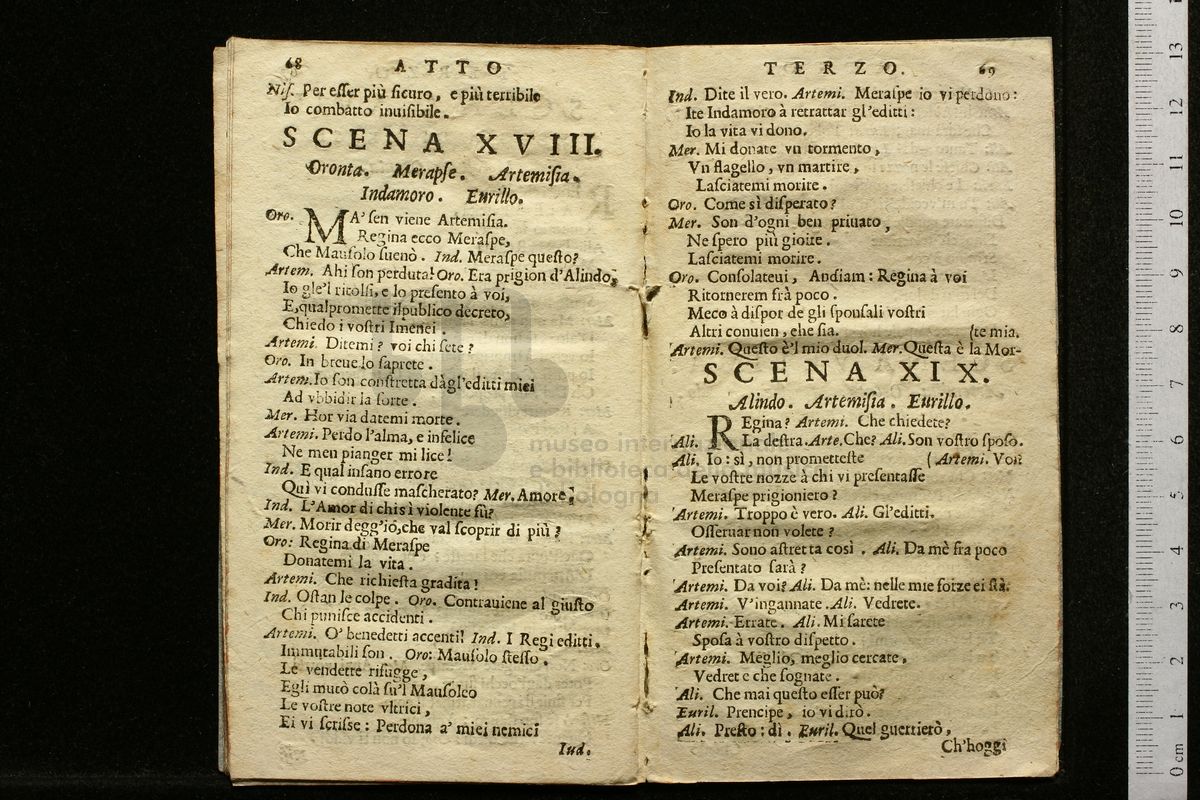 68 ATTO
Nis. Per eſſer più ſicuro, e più terribile
Io combatto inuiſibile.
SCENA XVIII.
Oronta. Merapſe. Artemiſia.
Indamoro. Eurillo.
Oro. MA' ſen viene Artemiſia.
Regina ecco Meraſpe,
Che Mauſolo ſuenò. Ind. Meraſpe queſto?
Artem. Ahi ſon perduta! Oro. Era prigion d'Alindo,
Io gle'l ritolſi, e lo preſento à voi,
E, qual promette il publico decreto,
Chiedo i voſtri Imenei.
Artemi. Ditemi? voi chi ſete?
Oro. In breue lo ſaprete.
Artem. Io ſon conſtretta dàgl'editti miei
Ad vbbidir la ſorte.
Mer. Hor via datemi morte.
Artemi. Perdo l'alma, e infelice
Ne men pianger mi lice!
Ind. E qual inſano errore
Quì vi conduſſe maſcherato? Mer. Amore;
Ind. L'Amor di chi sì violente fù?
Mer. Morir degg'iò, che val ſcoprir di più?
Oro: Regina di Meraſpe
Donatemi la vita.
Artemi. Che richieſta gradita!
Ind. Oſtan le colpe. Oro. Contrauiene al giuſto
Chi puniſce accidenti.
Artemi. O' benedetti accenti! Ind. I Regi editti,
Immutabili ſon. Oro: Mauſolo ſteſſo,
Le vendette rifugge,
Egli mutò colà ſu'l Mauſoleo
Le voſtre note vltrici,
Ei vi ſcriſse: Perdona a' miei nemici
Iud.
TERZO. 69
Ind. Dite il vero. Artemi. Meraſpe io vi perdono:
Ite Indamoro à retrattar gl'editti:
Io la vita vi dono.
Mer. Mi donate vn tormento,
Vn flagello, vn martire,
Laſciatemi morire.
Oro. Come sì diſperato?
Mer. Son d'ogni ben priuato,
Ne ſpero più gioire.
Laſciatemi morire.
Oro. Conſolateui, Andiam: Regina à voi
Ritornerem frà poco.
Meco à diſpor de gli ſponſali voſtri
Altri conuien, che ſia. (te mia.
Artemi. Queſto è'l mio duol. Mer. Queſta è la Mor-
SCENA XIX.
Alindo. Artemiſia. Eurillo.
REgina? Artemi. Che chiedete?
Ali. La deſtra. Arte. Che? Ali. Son voſtro ſpoſo.
Ali. Io: sì, non prometteſte (Artemi. Voi?
Le voſtre nozze à chi vi preſentaſſe
Meraſpe prigioniero?
Artemi. Troppo è vero. Ali. Gl'editti.
Oſſeruar non volete?
Artemi. Sono aſtretta così. Ali. Da mè fra poco
Preſentato ſarà?
Artemi. Da voi? Ali. Da mè: nelle mie forze ei ſtà.
Artemi. V'ingannate. Ali. Vedrete.
Artemi. Errate. Ali. Mi ſarete
Spoſa à voſtro diſpetto.
Artemi. Meglio, meglio cercate,
Vedrete che ſognate.
Ali. Che mai queſto eſſer può?
Euril. Prencipe, io vi dirò.
Ali. Preſto: dì. Euril. Quel guerrierò,
Ch'hoggi